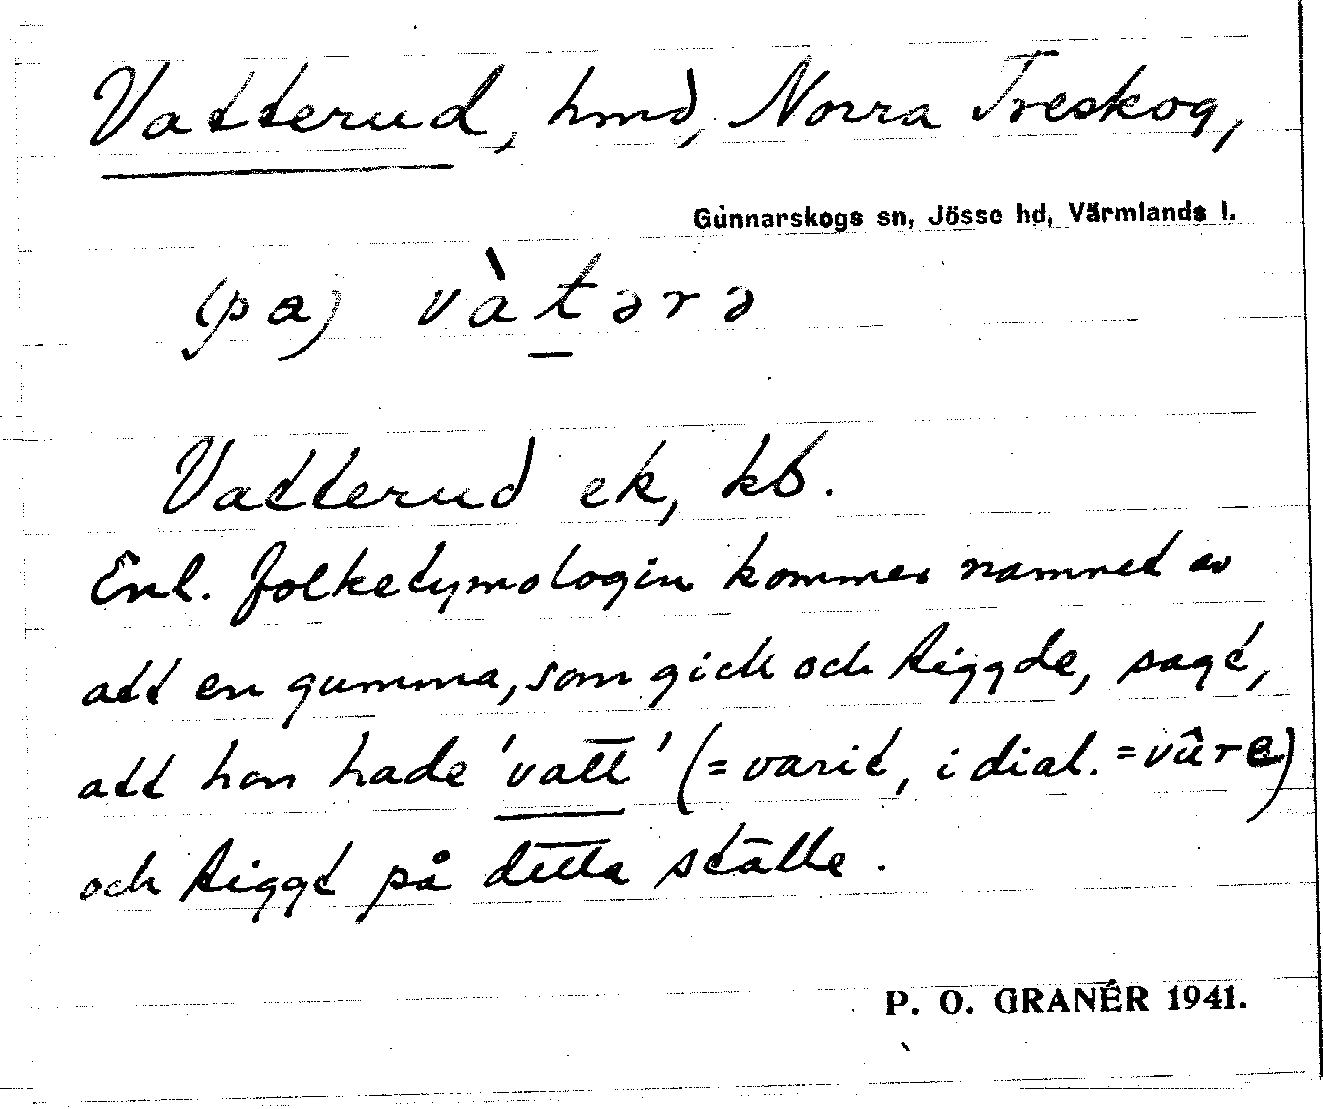 Vatterud, hmd, Norra Treskog,
Gunnarskogs sn, Jösse hd, Värmlands l.
(pa) vàt̲ərə
Vatterud ek, kb.
Enl. folketymologin kommer namnet av
att en gumma, som gick och tiggde, sagt,
att hon hade 'vatt' (= varit, i dial. = vûre)
och tiggt på detta ställe.
P. O. GRANÉR 1941.